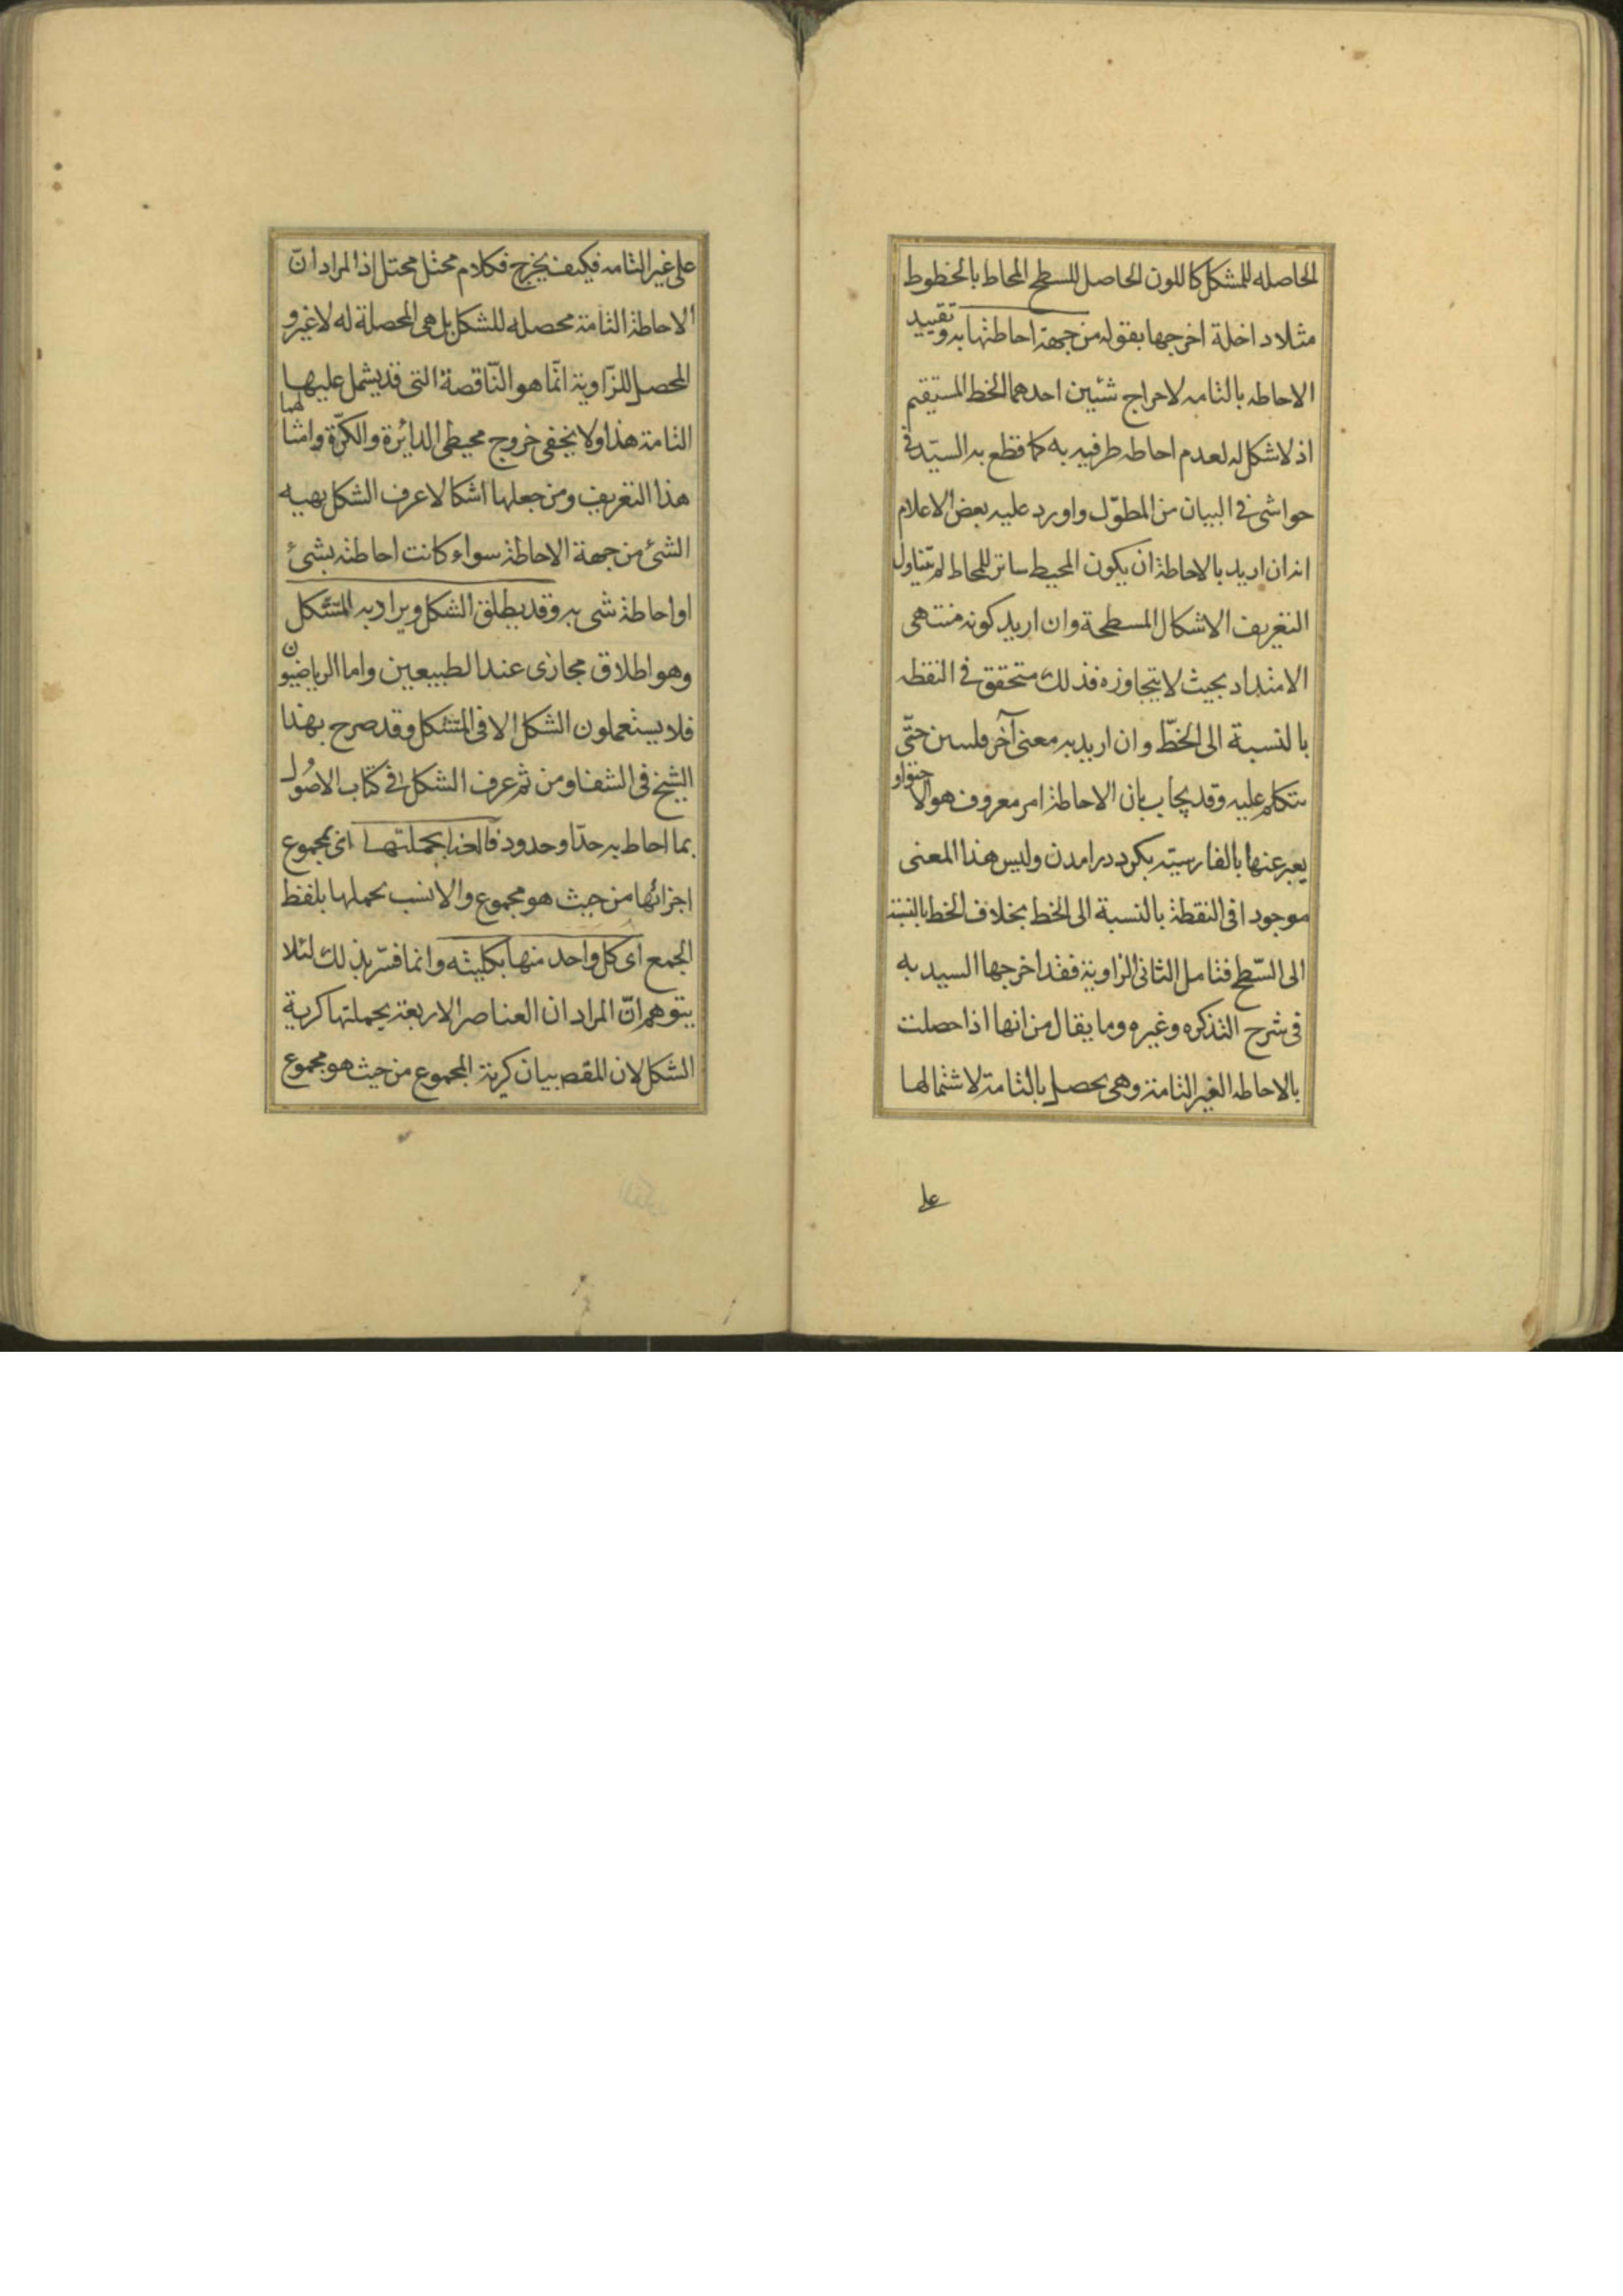 الحاصله للمشكل كاللون الحاصل للسطح المحاط بالخطوط
مثلا داخلة اخرجها بقوله من جهة احاطتها به وتقييد
الاحاطه بالتامه لاخراج شئين احدهما الخط المستقيم
اذ لا شكل له لعدم احاطه طرفيه به كما قطع به السيد فى
حواشى فى البيان من المطوّل واورد عليه بعض الاعلام
انه ان اريد بالاحاطة ان يكون المحيط ساتر للمحاط لم يتناول
التعريف الاشكال المسطحة وان اريد كونه منتهى
الامتداد بحيث لا يتجاوزه فذلك متحقق فى النقطه
بالنسبة الى الخطّ وان اريد به معنى آخر فليبين حتّى
نتكلم عليه وقد يجاب بان الاحاطة امر معروف هو الاحتواو
يعبر عنها بالفارسيّه بكرد درامدن وليس هذا المعنى
موجودا فى النقطة بالنسبة الى الخط بخلاف الخط بالنسبة
الى السّطح فتامل الثانى الزاوية فقد اخرجها السيد به
فى شرح التذكره وغيره وما يقال من انها اذا حصلت
بالاحاطه الغير التامة وهى يحصل بالتامة لاشتمالها
على
على غير التامه فكيف يخرج فكلام مختل محتل اذ المراد انّ
الاحاطة التامة محصله للشكل بل هى المحصلة له لا غير و
المحصل للزّاوية انّما هو النّاقصة التى قد يشمل عليها
التامة هذا ولا يخفى خروج محيطى الدائرة والكرّة وامثالهما
هذا التعريف ومن جعلها اشكالا عرف الشكل بهيه
الشئ من جهة الاحاطة سواء كانت احاطته بشئ
او احاطة شى به وقد يطلق الشكل ويراد به المتشكل
وهو اطلاق مجازى عند الطبيعين واما الرياضيون
فلا يستعملون الشكل الا فى المتشكل وقد صرح بهذا
الشيخ فى الشفا ومن ثم عرف الشكل فى كتاب الاصُول
بما احاط به حدّ او حدود فالعناصر بجملتها اى بمجموع
اجزائها من حيث هو مجموع والانسب بحملها بلفظ
الجمع اى كل واحد منها بكليته وانما فسّر بذلك لئلا
يتوهم انّ المراد ان العناصر الاربعة بجملتها كرية
الشكل لان المقصد بيان كرية المجموع من حيث هو مجموع